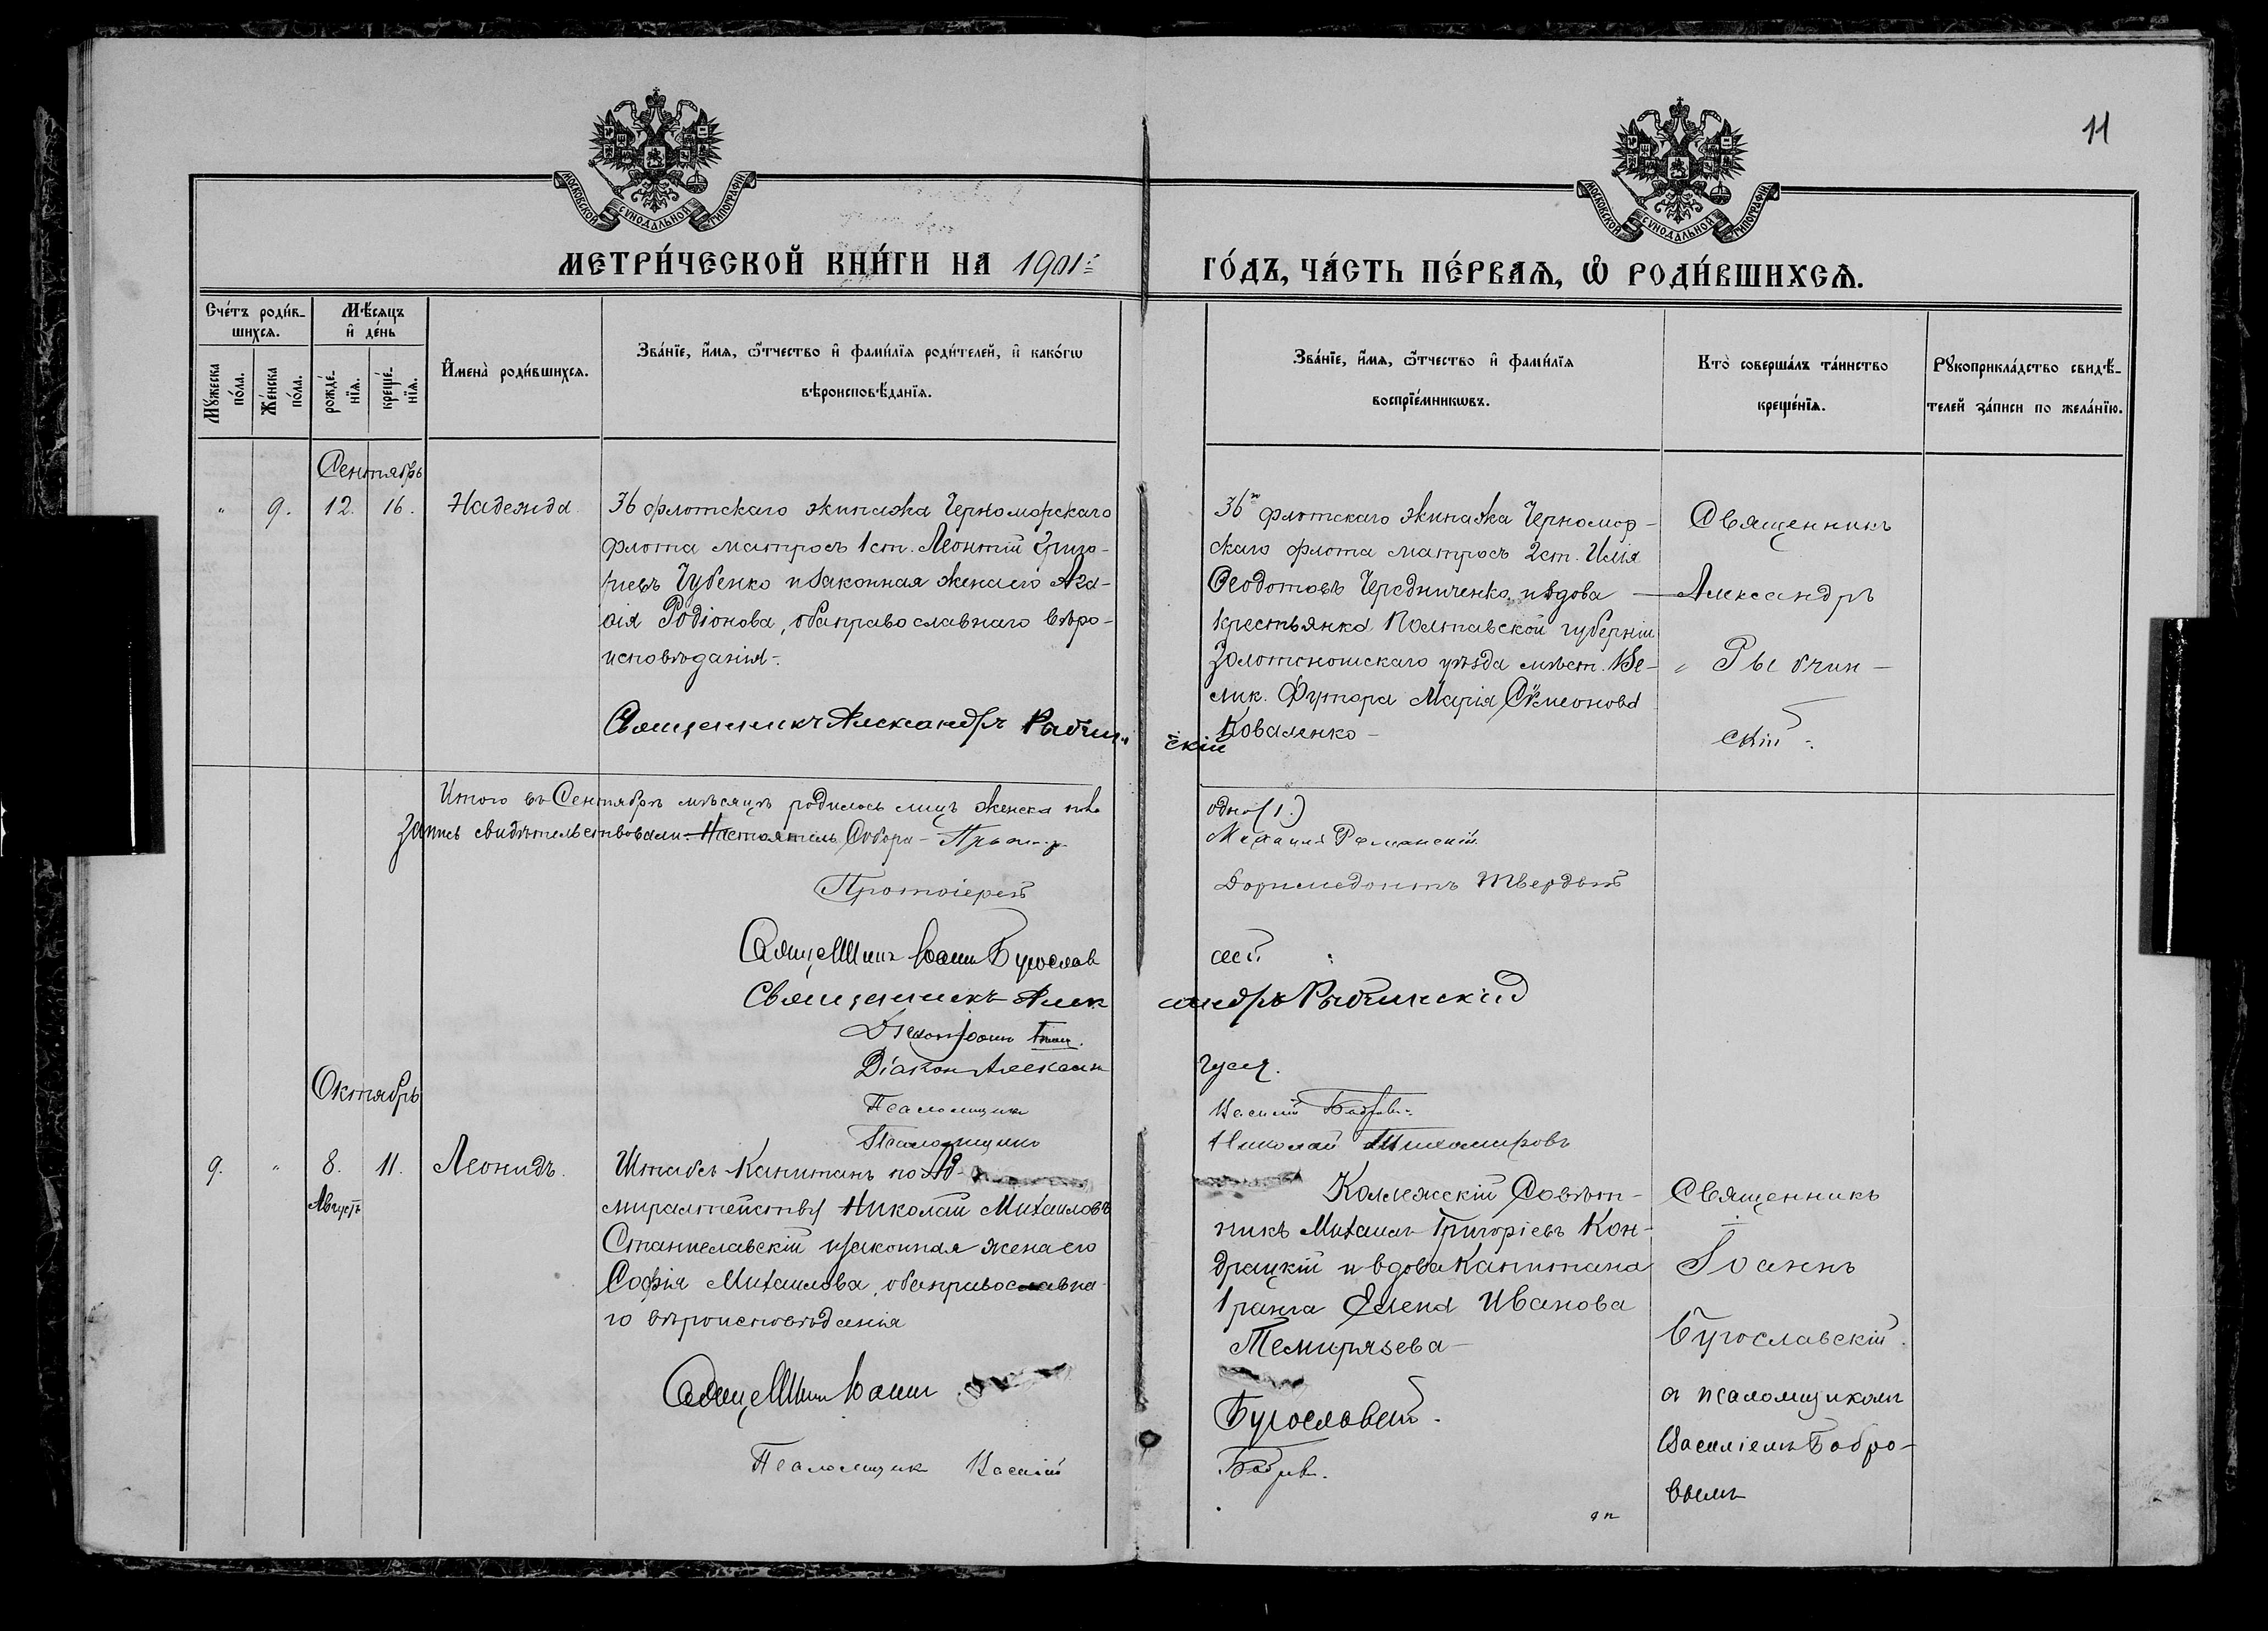 11
МОСКОВСКОЙ СѴНОДАЛЬНОЙ ТИПОГРАФІИ
МОСКОВСКОЙ СѴНОДАЛЬНОЙ ТИПОГРАФІИ
МЕТРИ́ЧЕСКОЙ КНИ́ГИ НА 1901
ГО́ДЪ, ЧА́СТЬ ПЕ́РВАѦ, Ѡ҆ РОДИ́ВШИХСѦ.
Сче́тъ роди́в-
шихсѧ.
Мꙋ́жеска по́ла.
Же́нска по́ла.
Мѣ́сѧцъ
и҆ де́нь
рожде́-
нїѧ.
креще́-
нїѧ.
И҆мена̀ роди́вшихсѧ.
Зва́нїе, и҆́мѧ, ѻ҆́тчество и҆ фами́лїѧ роди́телей, и҆ како́гѡ
вѣроисповѣ́данїѧ.
Зва́нїе, и҆́мѧ, ѻ҆́тчество и҆ фами́лїѧ
воспрїе́мникѡвъ.
Кто̀ соверша́лъ та́инство
креще́нїѧ.
Рꙋкоприкла́дство свидѣ́-
телей за́писи по жела́нїю.
Сентябрь
" 9. 12. 16. Надежда.
36 флотскаго экипажа Черноморскаго
флота матросъ 1 ст. Леонтій Григо-
рьевъ Чубенко и законная жена его Ага-
ѳія Родіонова, оба православнаго вѣро-
исповѣданія.
Священникъ Александръ Рыбчин-
скій
36го флотскаго экипажа Черномор-
скаго флота матросъ 2 ст. Илія
Ѳеодотовъ Чередниченко и вдова
крестьянка Полтавской губерніи
Золотоношскаго уѣзда мѣст. Ве-
лик. Хутора Марія Сѵмеонова
Коваленко
Священникъ
Александръ
Рыбчин-
скій
Итого въ Сентябрѣ мѣсяцѣ родилось лицъ женска пола
одно (1.)
Запись свидѣтельствовали: Настоятель Собора
Михаилъ Романскій
Протоіерей
Доримедонтъ Твердый
Священникъ Іоаннъ Бугослав
скій
Священникъ Алек
сандръ Рыбчинскій
Діаконъ Іоаннъ
Діаконъ Александръ
Гуся.
Псаломщикъ
Василій Бобровъ
Псаломщикъ
Николай Тихомировъ
Октябрь
9. " 8. 11. Леонидъ.
Августъ
Штабсъ-Капитанъ по Ад-
миралтейству Николай Михаиловъ
Станиславскій и законная жена его
Софія Михаилова, оба православна-
го вѣроисповѣданія
Коллежскій Совѣт-
никъ Михаилъ Григоріевъ Кон-
драцкій и вдова Капитана
1 ранга Елена Иванова
Темирязева
Священникъ
Іоаннъ
Бугославскій
съ псаломщикомъ
Василіемъ Бобро-
вымъ
Священникъ Іоаннъ
Бугославскій.
Псаломщикъ Василій
Бобровъ.